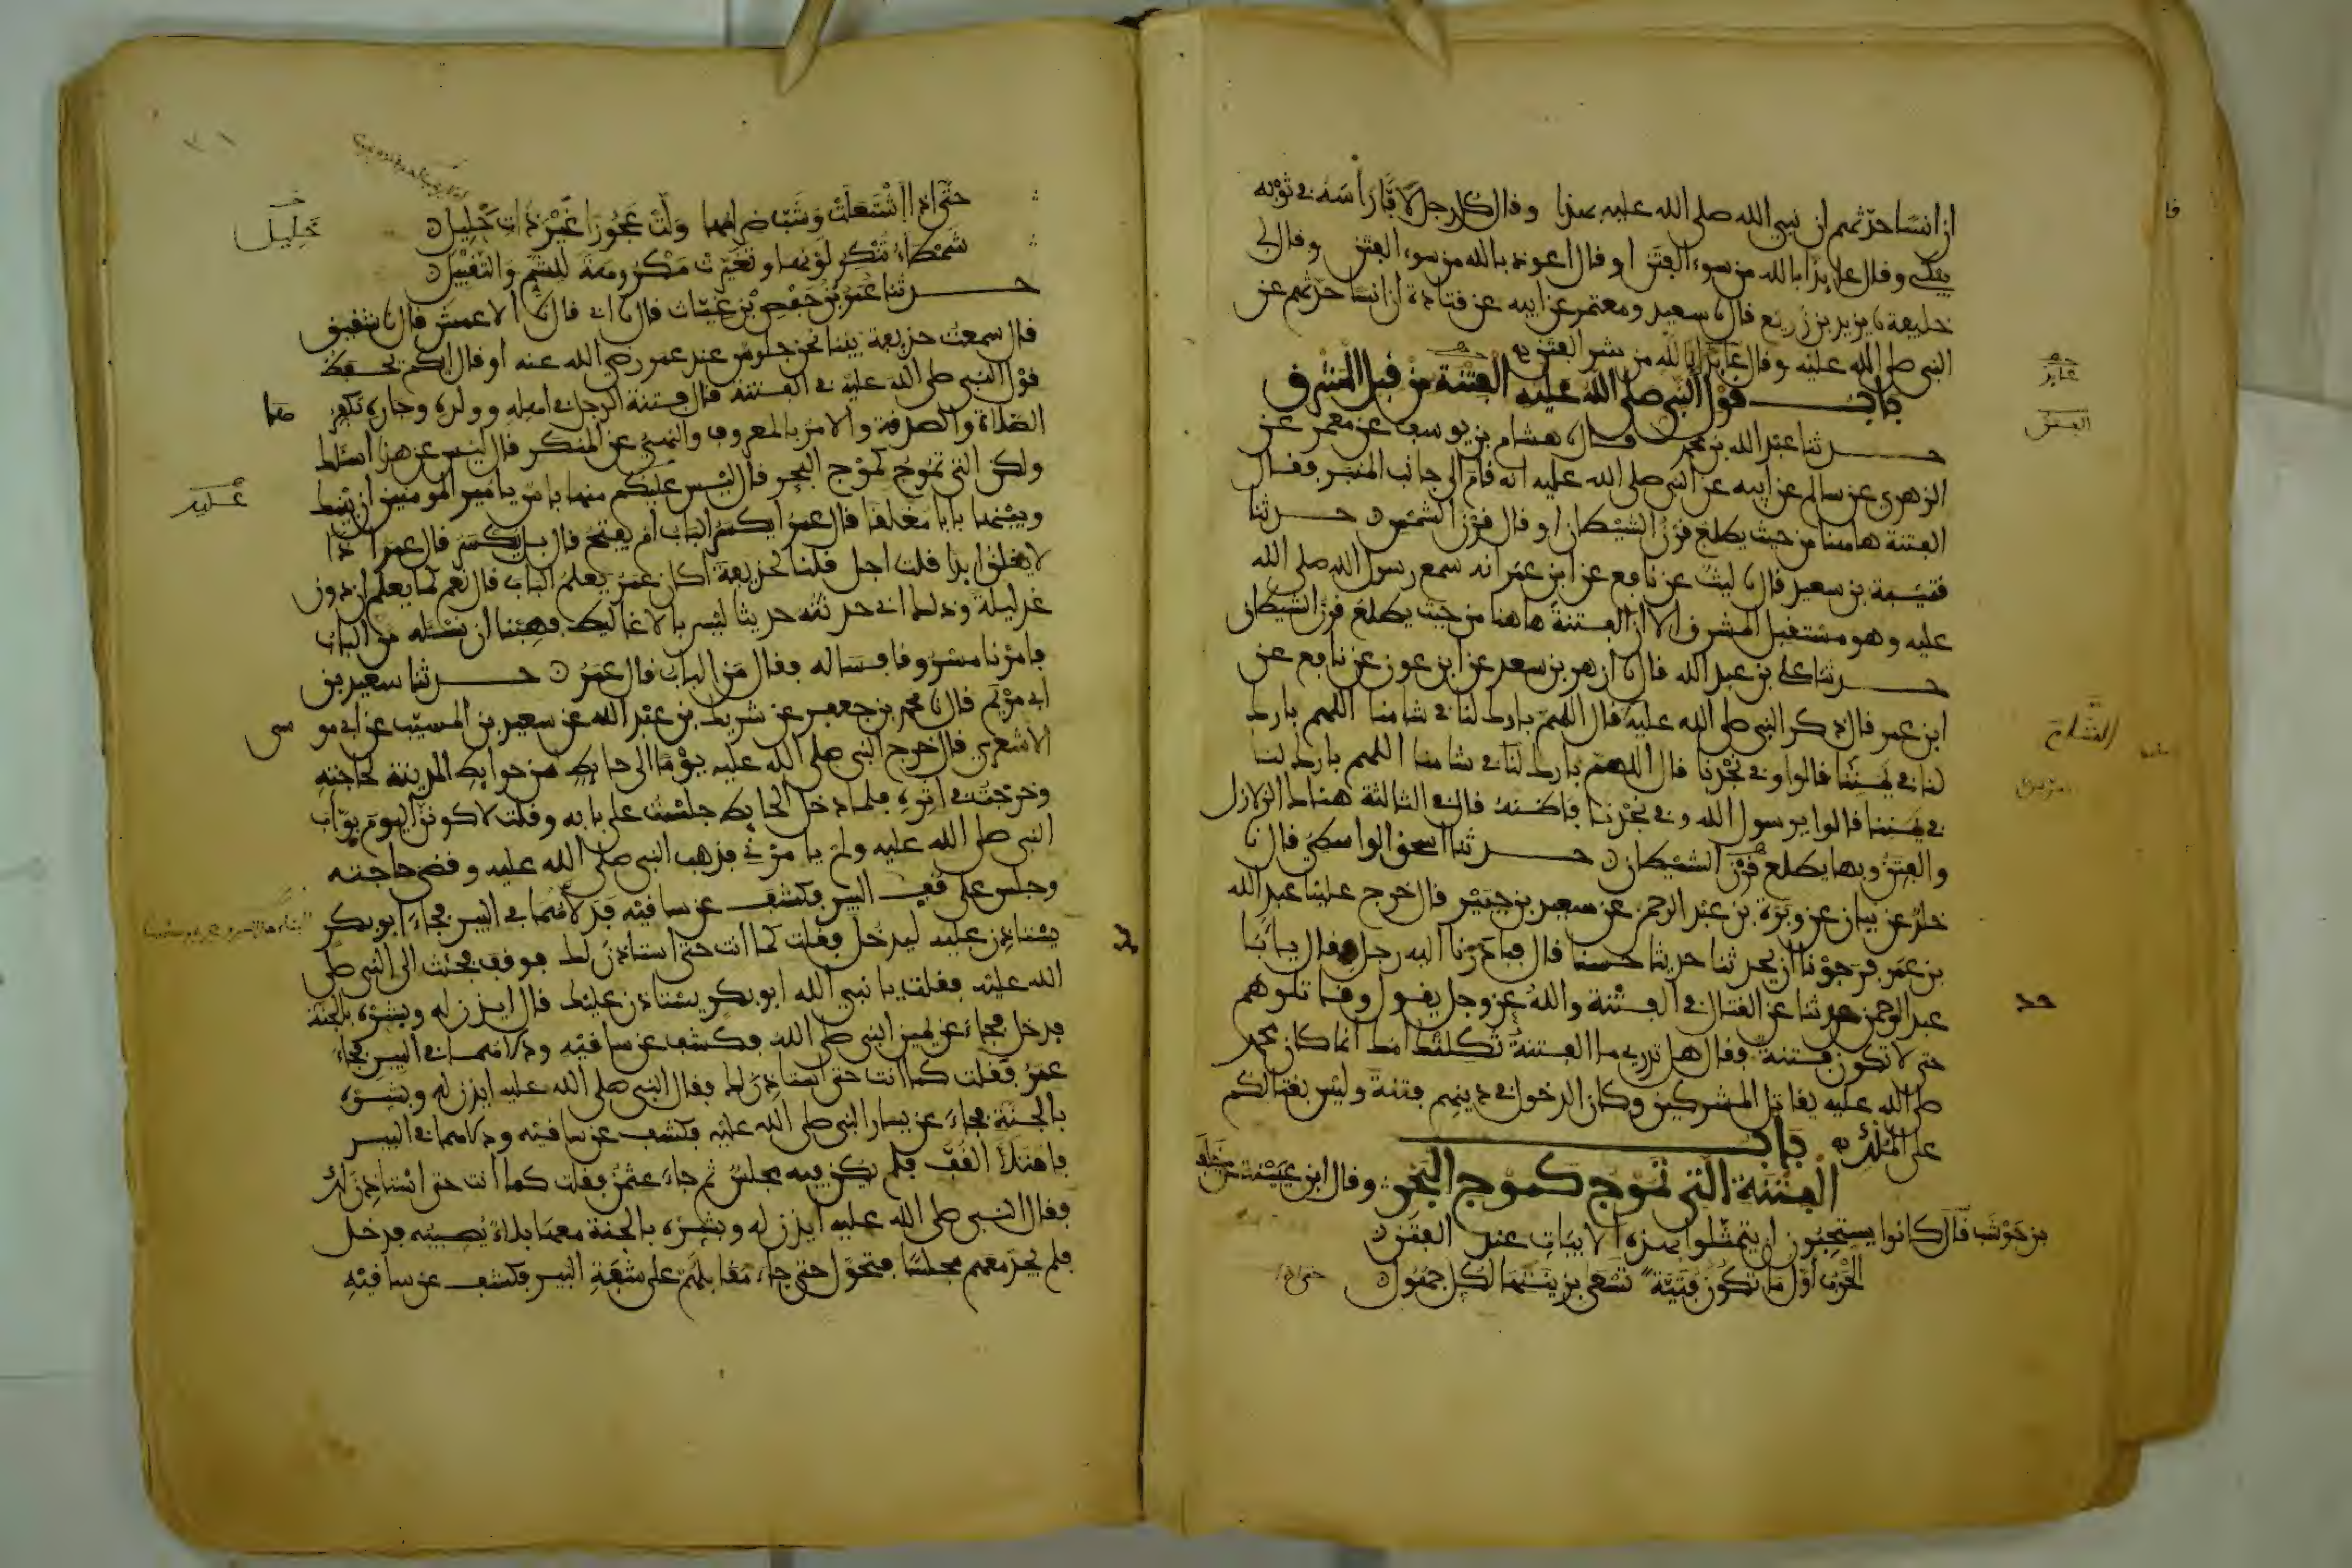 ان انسا حدثهم ان نبي الله صلى الله عليه بهذا وقال كل رجل لافا رأسه في ثوبه
يبكي وقال عايذا بالله من سوء الفتن او قال اعوذ بالله من سوء الفتن وقال لي
خليفة نا يزيد بن زريع قال نا سعيد ومعتمر عن ابيه عن قتادة ان انسا حدثهم عن
النبي صلى الله عليه وقال عايذا بالله من شر الفتن
باب قول النبي صلى الله عليه الفتنة من قبل المشرق
حدثنا عبد الله بن محمد قال نا هشام بن يوسف عن معمر عن
الزهري عن سالم عن ابيه عن النبي صلى الله عليه انه قام الى جانب المنبر فقال
الفتنة هاهنا من حيث يطلع قرن الشيطان او قال قرن الشمس حدثنا
قتيبة بن سعيد قال نا ليث عن نافع عن ابن عمر انه سمع رسول الله صلى الله
عليه وهو مستقبل المشرق الا ان الفتنة هاهنا من حيث يطلع قرن الشيطان
حدثنا علي بن عبد الله قال نا ازهر بن سعد عن ابن عون عن نافع عن
ابن عمر قال ذكر النبي صلى الله عليه قال اللهم بارك لنا في شامنا اللهم بارك
لنا في يمننا قالوا وفي نجدنا قال اللهم بارك لنا في شامنا اللهم بارك لنا
في يمننا قالوا يرسول الله وفي نجدنا فاظنه قال في الثالثة هناك الزلازل
والفتن وبها يطلع قرن الشيطان حدثنا اسحق الواسطي قال نا
خلد عن بيان عن وبرة بن عبد الرحمن عن سعيد بن جبير قال خرج علينا عبد الله
بن عمر فرجونا ان يحدثنا حديثا حسنا قال فبادرنا اليه رجل فقال يا ابا
عبد الرحمن حدثنا عن القتال في الفتنة والله عز وجل يقول وقاتلوهم
حتى لا تكون فتنة فقال هل تدري ما الفتنة ثكلتك امك انما كان محمد
صلى الله عليه يقاتل المشركين وكان الدخول في دينهم فتنة وليس بقتالكم
على الملك باب
الفتنة التي تموج كموج البحر وقال ابن عيينة عن خلف
بن حوشب قال كانوا يستحبون ان يتمثلوا بهذه الابيات عند الفتن
الحرب اول ما تكون فتية تسعى بزينتها لكل جهول
عايذ
الفتن
حتى اذا
حتى اذا اشتعلت وشب ضرامها ولت عجوزا غير ذات خليل
شمطاء تنكر لونها وتغيرت مكروهة للشم والتقبيل
حدثنا عمر بن حفص بن غياث قال نا ابي قال نا الاعمش قال نا شقيق
قال سمعت حذيفة بينا نحن جلوس عند عمر رضي الله عنه اذ قال ايكم يحفظ
قول النبي صلى الله عليه في الفتنة قال فتنة الرجل في اهله وولده وجاره تكفرها
الصلاة والصدقة والامر بالمعروف والنهي عن المنكر قال ليس عن هذا اسئلك
ولكن التي تموج كموج البحر قال ليس عليكم منها باس يا امير المومنين ان بينك
وبينها بابا مغلقا قال عمر ايكسر الباب ام يفتح قال بل يكسر قال عمر اذا
لا يغلق ابدا قلت اجل قلنا لحذيفة اكان عمر يعلم الباب قال نعم كما يعلم ان دون
غد ليلة وذلك اني حدثته حديثا ليس بالاغاليط فهبنا ان نسئله من الباب
فامرنا مسروقا فساله فقال من الباب قال عمر حدثنا سعيد بن
ابي مريم قال نا محمد بن جعفر عن شريك بن عبد الله عن سعيد بن المسيب عن ابي موسى
الاشعري قال خرج النبي صلى الله عليه يوما الى حايط من حوايط المدينة لحاجته
وخرجت في اثره فلما دخل الحايط جلست على بابه وقلت لاكونن اليوم بواب
النبي صلى الله عليه ولم يامرني فذهب النبي صلى الله عليه وقضى حاجته
وجلس على قف البير فكشف عن ساقيه فدلاهما في البير فجاء ابو بكر
يستاذن عليه ليدخل فقلت كما انت حتى استاذن لك فوقف فجئت الى النبي صلى
الله عليه فقلت يا نبي الله ابو بكر يستاذن عليك قال ايذن له وبشره بالجنة
فدخل فجاء عن يمين النبي صلى الله فكشف عن ساقيه ودلاهما في البير فجاء
عمر فقلت كما انت حتى استاذن لك فقال النبي صلى الله عليه ايذن له وبشره
بالجنة فجاء عن يسار النبي صلى الله عليه فكشف عن ساقيه ودلاهما في البير
فامتلأ القف فلم يكن فيه مجلس ثم جاء عثمن فقلت كما انت حتى استاذن لك
فقال النبي صلى الله عليه ايذن له وبشره بالجنة معها بلاء يصيبه فدخل
فلم يجد معهم مجلسا فتحول حتى جاء مقابلهم على شفة البير فكشف عن ساقيه
خليل
عليه